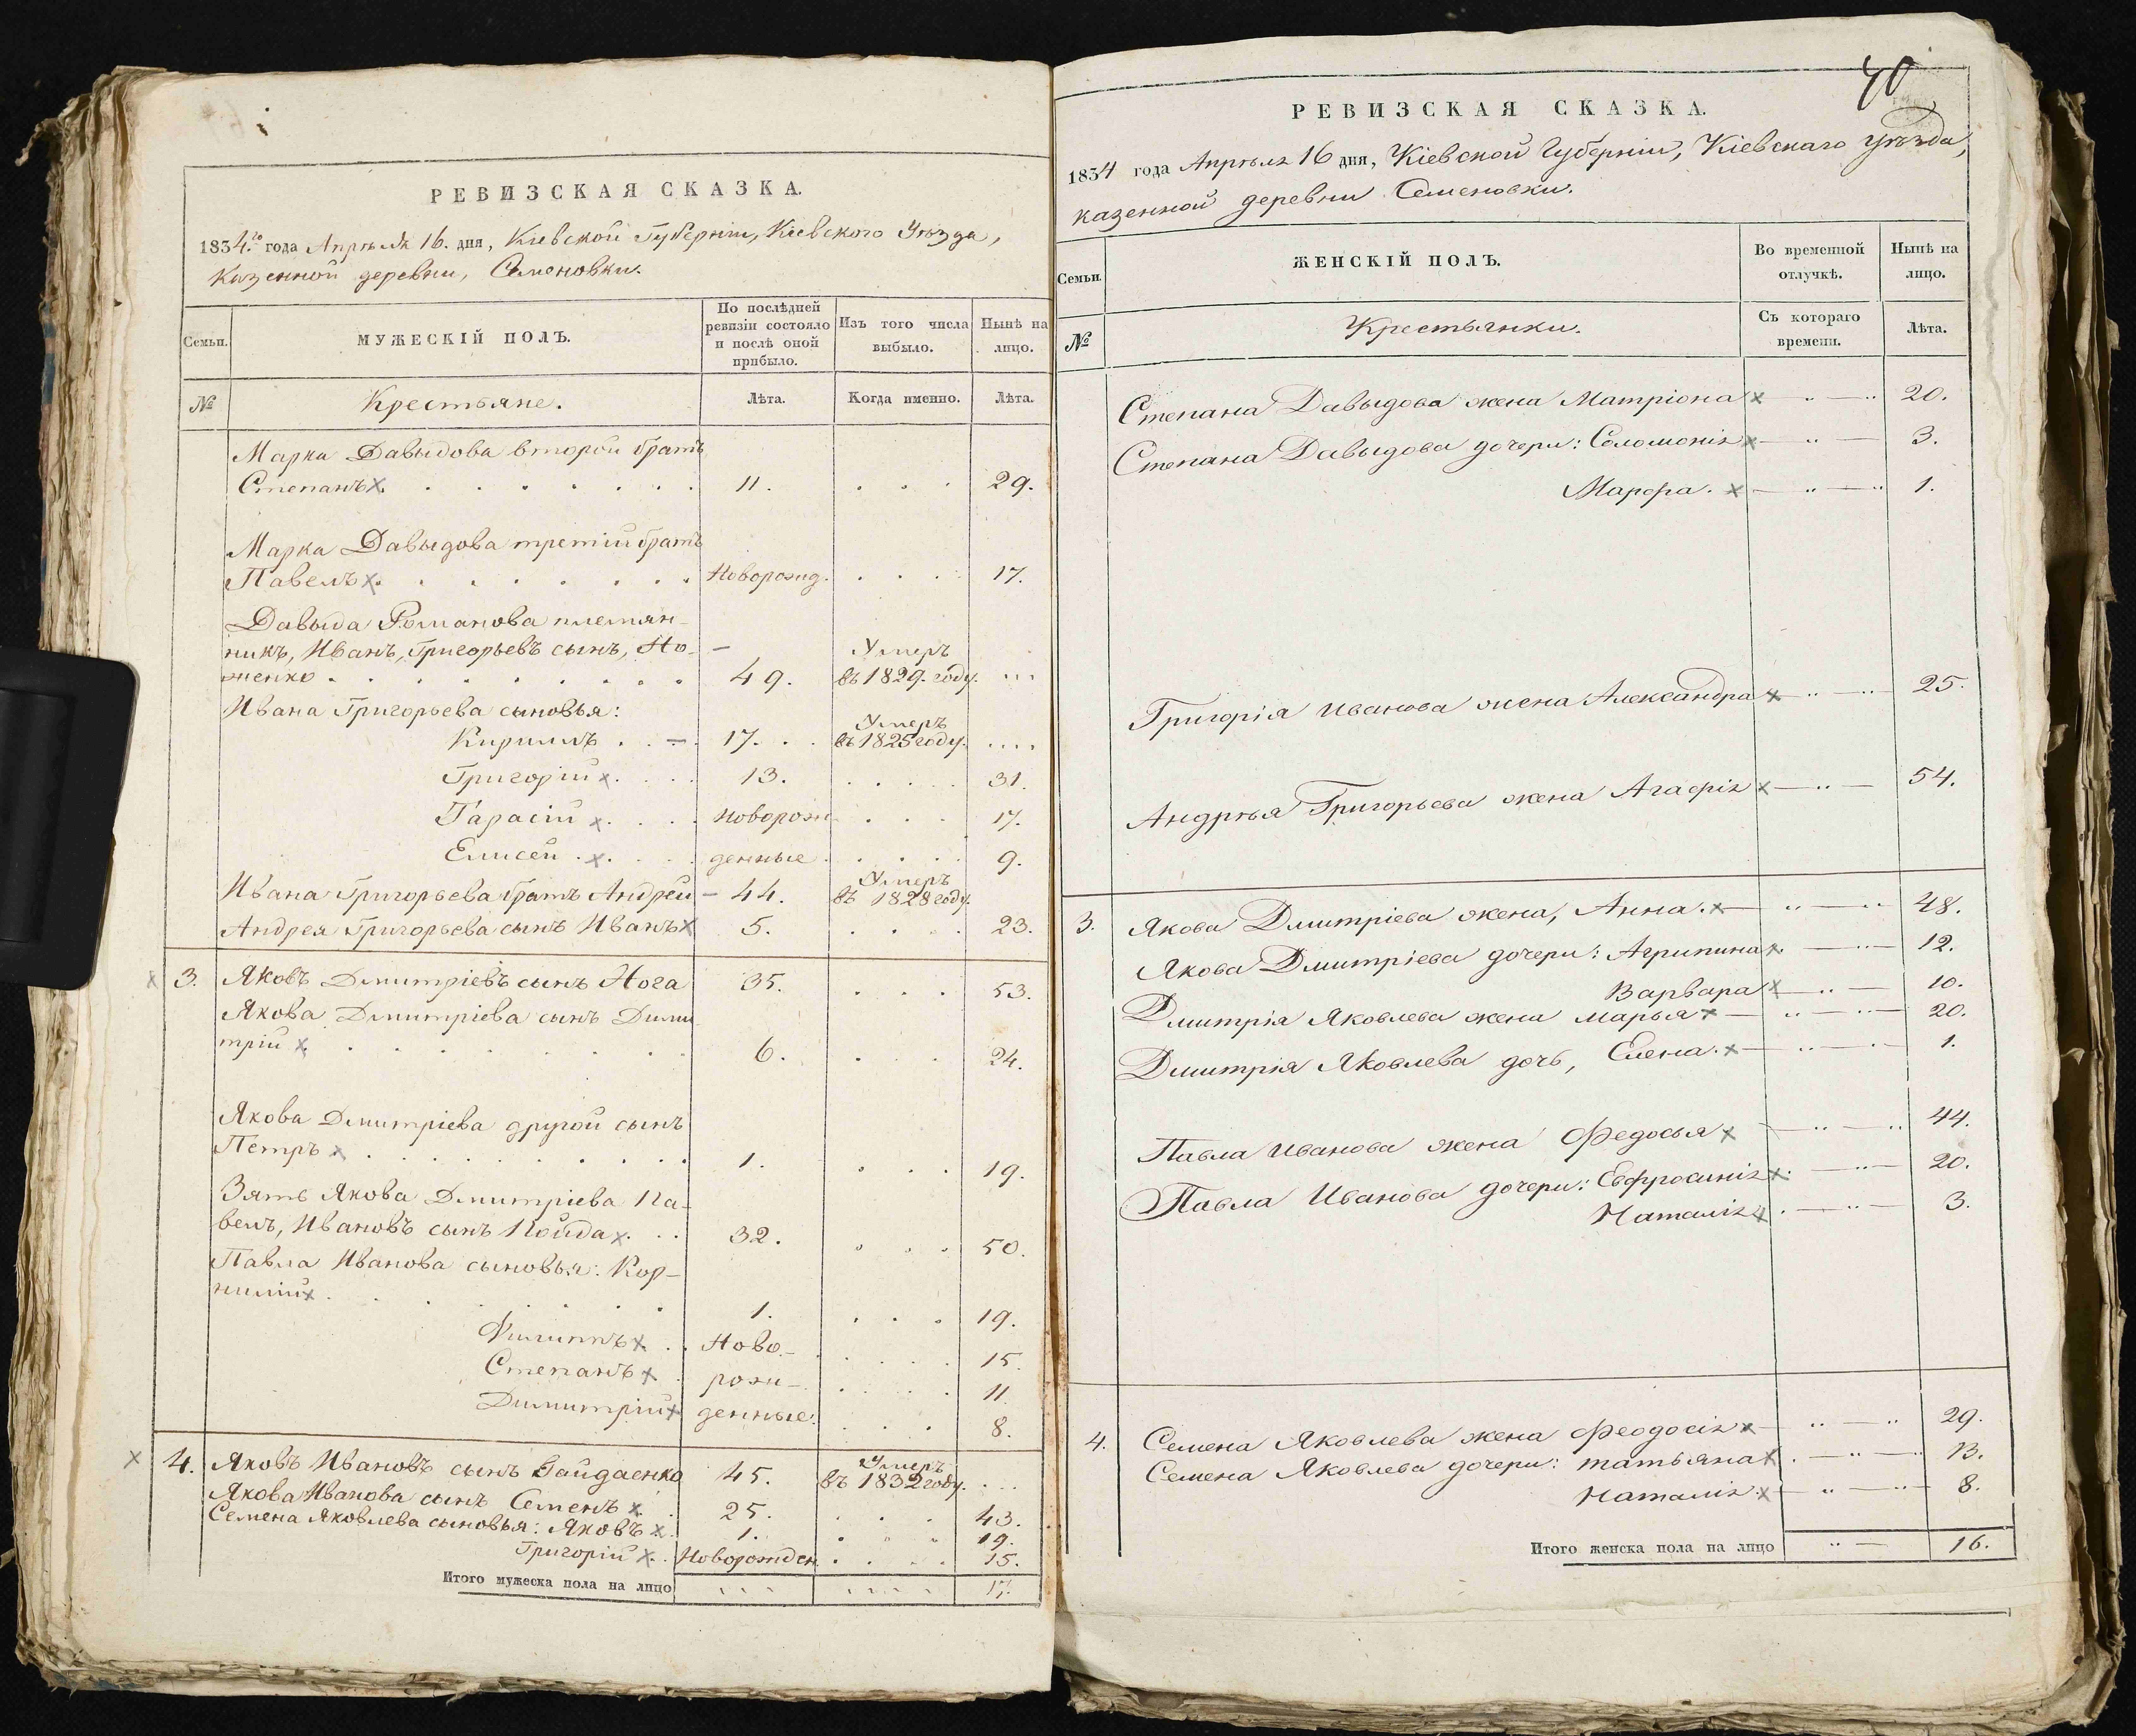 РЕВИЗСКАЯ СКАЗКА.
1834.го года Апрѣля 16. дня, Кіевской Губерніи, Кіевского Уѣзда,
Казенной деревни, Семеновки.
Семьи.
МУЖЕСКІЙ ПОЛЪ.
По послѣдней ревизіи состояло и послѣ оной прибыло.
Изъ того числа выбыло.
Нынѣ на лицо.
№
Крестьяне.
Лѣта.
Когда именно.
Лѣта.
Марка Давыдова второй братъ
Степанъ x . . . . . . . 11. . . . 29.
Марка Давыдова третій братъ
Павелъ x . . . . . . . Новорожд. . . . . 17.
Давыда Романова племян-
никъ, Иванъ, Григорьевъ сынъ, Но- — Умеръ
женко . . . . . . . . 49. въ 1829. году. ...
Ивана Григорьева сыновья:
Кирилъ . . — 17. . . Умеръ въ 1825 году. ....
Григорій x . . . 13. . . . . . 31.
Тарасій x . . . Новорож- . . . 17.
Елисей . x . . . денные . . . . . 9.
Ивана Григорьева братъ Андрей — 44. Умеръ въ 1828 году.
Андрея Григорьева сынъ Иванъ x 5. . . . . 23.
x 3. Яковъ Дмитріевъ сынъ Нога 35. . . . 53.
Якова Дмитріева сынъ Дими-
трій x . . . . . . . . 6. . . . 24.
Якова Дмитріева другой сынъ
Петръ x . . . . . . . . . 1. . . . 19.
Зять Якова Дмитріева Па-
велъ, Ивановъ сынъ Пойда x . . 32. . . . 50.
Павла Иванова сыновья: Кор-
нилій x . . . . . . . 1. . . . 19.
Филиппъ x . . Ново- . . . . . 15.
Степанъ x . рож- . . . . 11.
Димитрій x денные. . . . 8.
x 4. Яковъ Ивановъ сынъ Гайдаенко 45. Умеръ въ 1832 году. ...
Якова Иванова сынъ Семенъ x . 25. . . . 43.
Семена Яковлева сыновья: Яковъ x . 1. . . . 19.
Григорій x . . Новорожден. . . . . 15.
Итого мужеска пола на лицо 17.
40
РЕВИЗСКАЯ СКАЗКА.
1834 года Апрѣля 16 дня, Кіевской Губерніи, Кіевскаго Уѣзда,
казенной деревни Семеновки.
Семьи.
ЖЕНСКІЙ ПОЛЪ.
Во временной отлучкѣ.
Нынѣ на лицо.
№
Крестьянки.
Съ котораго времени.
Лѣта.
Степана Давыдова жена Матріона x 20.
Степана Давыдова дочери: Соломонія x 3.
Марфа. x 1.
Григорія Иванова жена Александра x 25.
Андрѣя Григорьева жена Агафія x 54.
3. Якова Дмитріева жена, Анна. x 48.
Якова Дмитріева дочери: Агрипина x 12.
Варвара x 10.
Дмитрія Яковлева жена Марья x 20.
Дмитрія Яковлева дочь, Елена. x 1.
Павла Иванова жена Федосья x 44.
Павла Иванова дочери: Евфросинія x 20.
Наталія x 3.
4. Семена Яковлева жена Феодосія x 29.
Семена Яковлева дочери: Татьяна x 13.
Наталія x 8.
Итого женска пола на лицо 16.